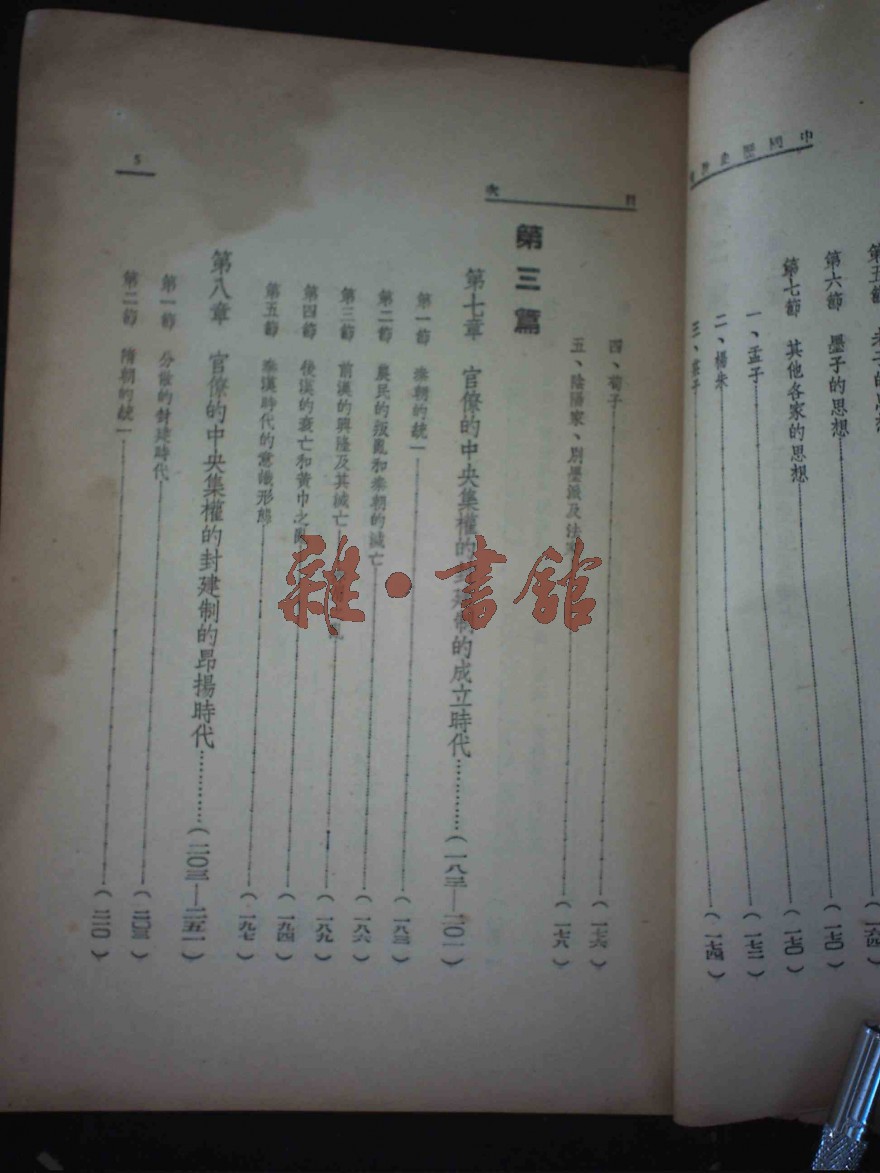 第六節　墨子的思想……(一七〇)
第七節　其他各家的思想……(一七〇)
一、孟子……(一七二)
二、楊朱……(一七四)
目　次
四、荀子……(一七六)
五、陰陽家、別墨派及法家……(一七八)
第三篇
第七章　官僚的中央集權的封建制的成立時代……(一八三—二〇一)
第一節　秦朝的統一……(一八三)
第二節　農民的叛亂和秦朝的滅亡……(一八六)
第三節　前漢的興隆及其滅亡……(一八九)
第四節　後漢的衰亡和黃巾之亂……(一九四)
第五節　秦漢時代的意識形態……(一九七)
第八章　官僚的中央集權的封建制的昂揚時代……(二〇三—二五一)
第一節　分散的封建時代……(二〇三)
第二節　隋朝的統一……(二一〇)
5
雜·書館